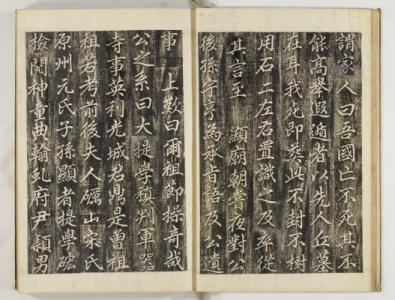 謂家人曰吾國亡不死其不
能高舉遐遁者以先人丘墓
在耳我死即葬此不封不樹
用石二左右置識之及卒從
其言至 顯廟朝嘗夜對公
後孫宇亨為承旨語及公遺
事 上教曰爾祖節操奇哉
公之系曰大提學稹判軍器
寺事英利光城君鼎是曾祖
祖若考前後夫人礪山宋氏
原州元氏子孫顯者提學
檢閱神童典翰虬府尹穎男